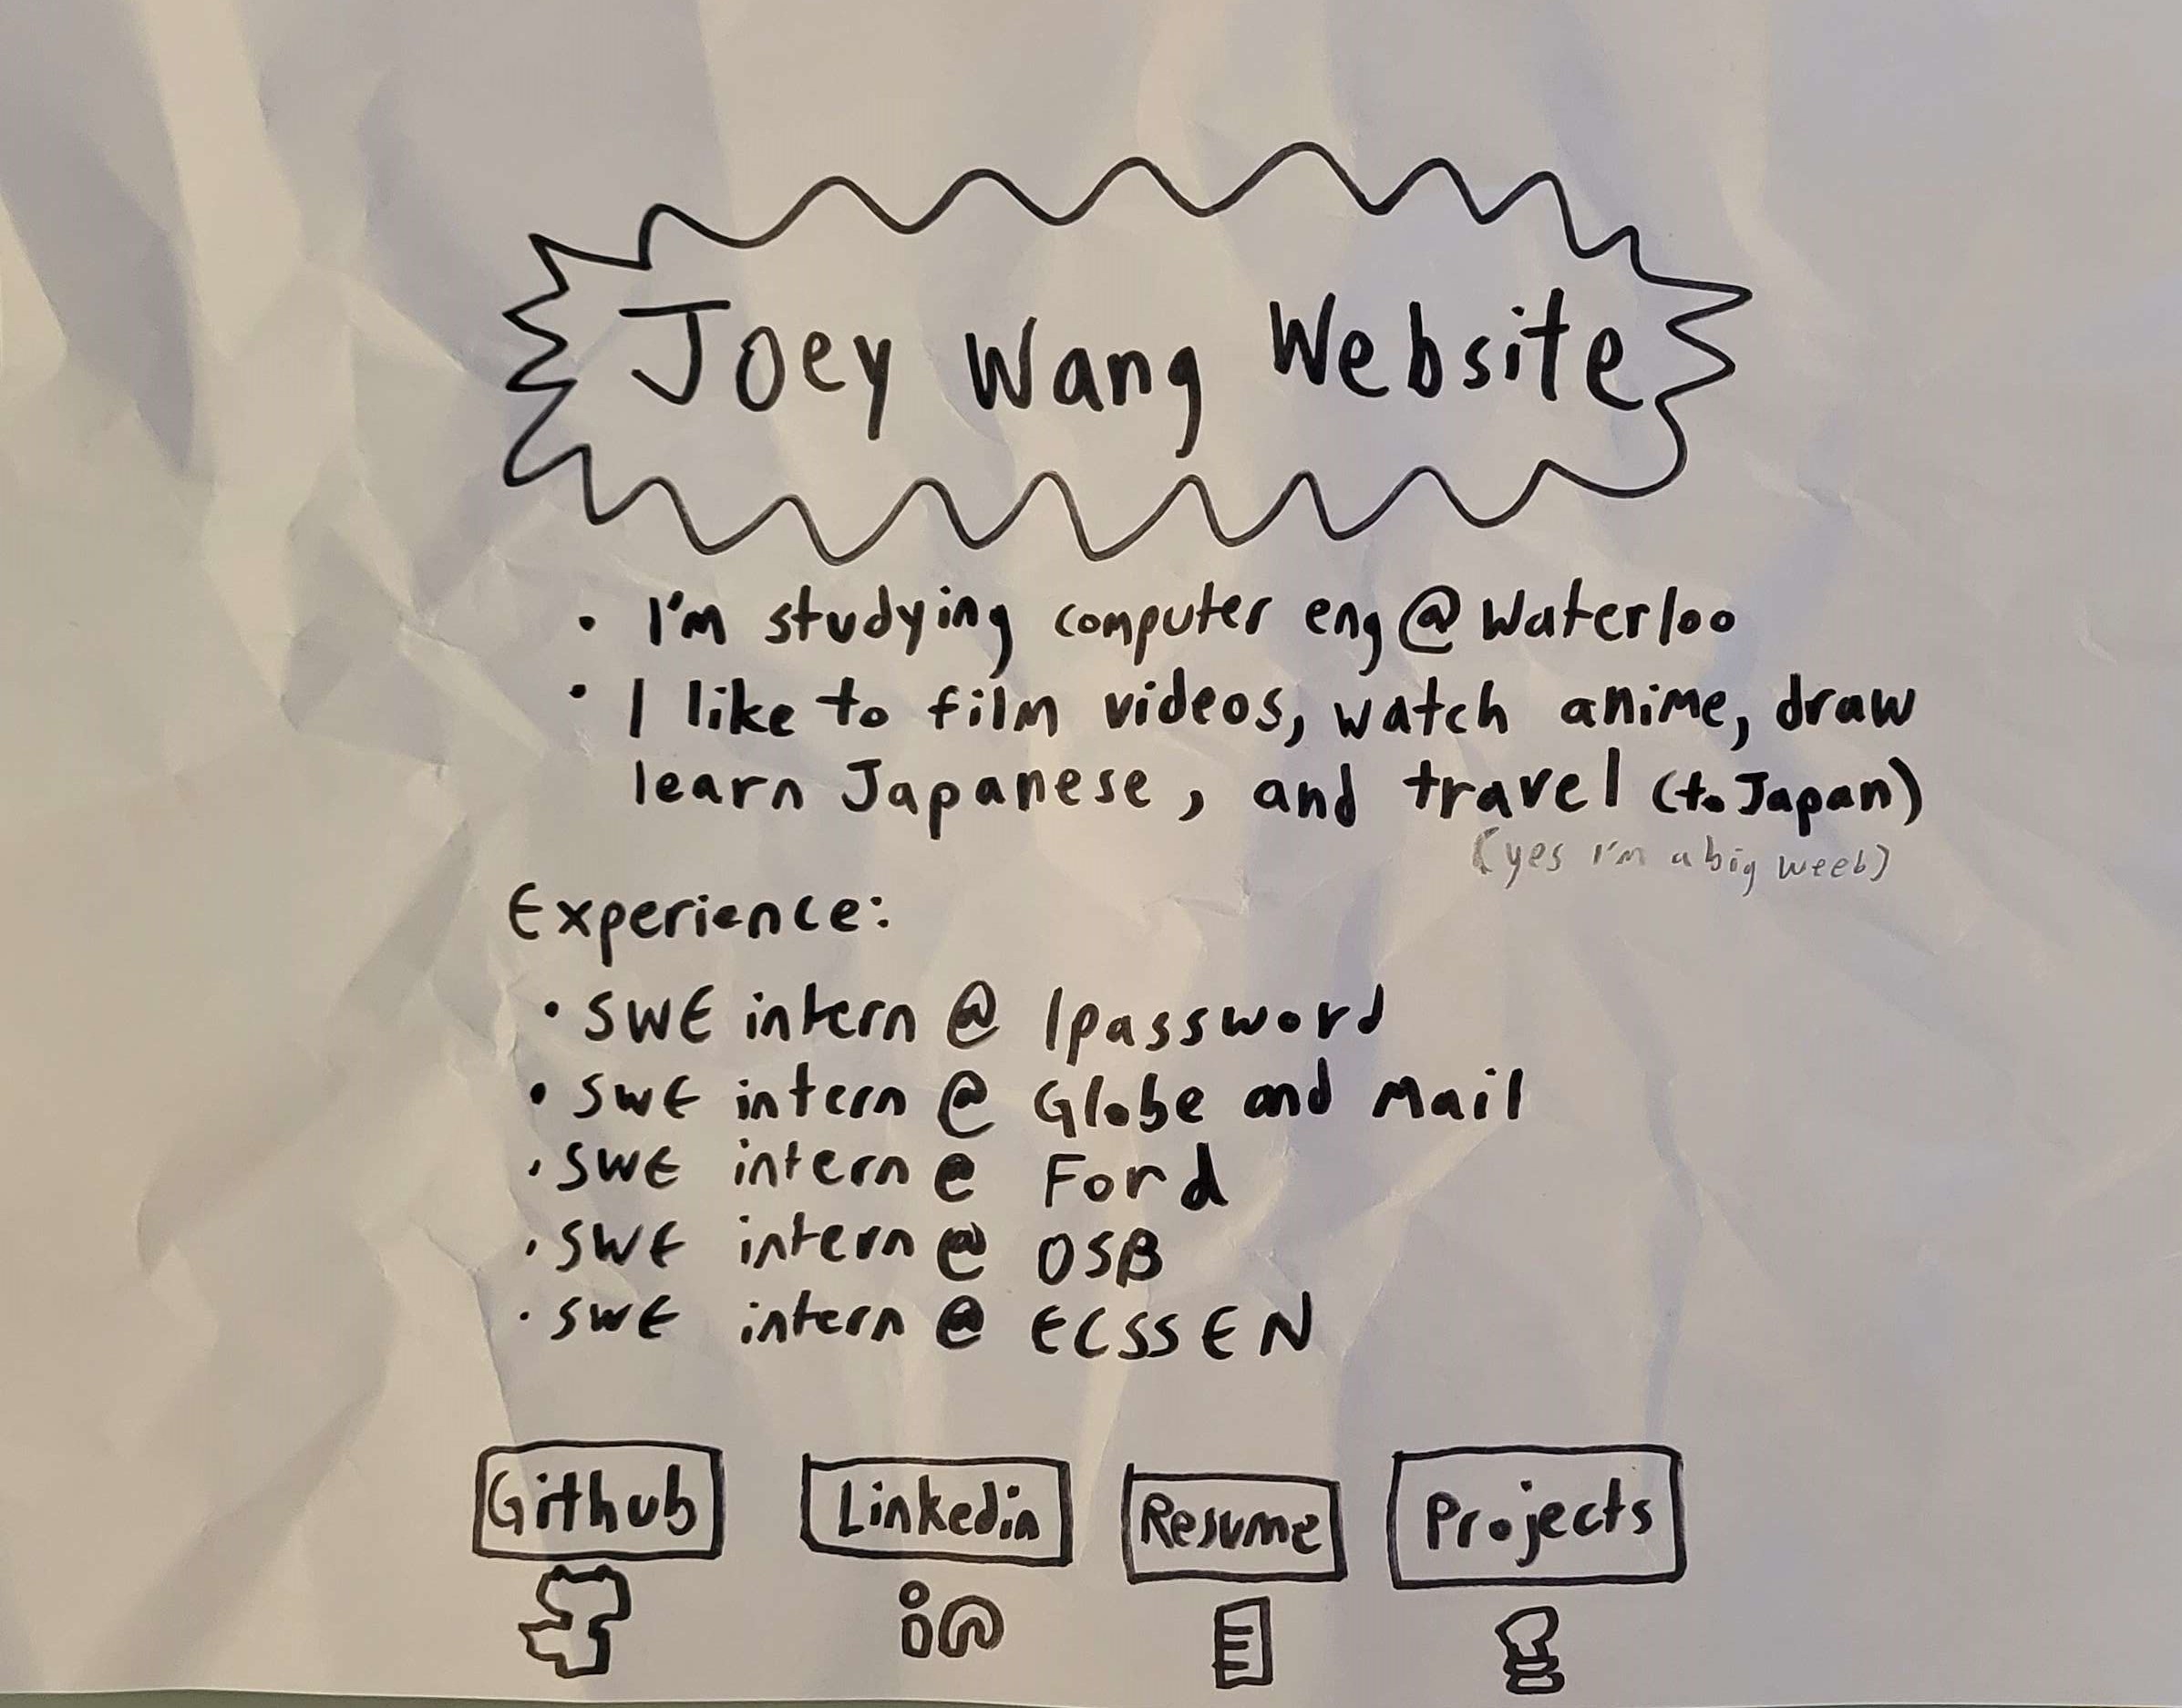 Joey Wang Website
• I'm studying computer eng @ Waterloo
• I like to film videos, watch anime, draw
learn Japanese, and travel (to Japan)
(yes I'm a big weeb)
Experience:
• SWE intern @ 1password
• SWE intern @ Globe and Mail
• SWE intern @ Ford
• SWE intern @ OSB
• SWE intern @ ECSSEN
Github Linkedin Resume Projects
in